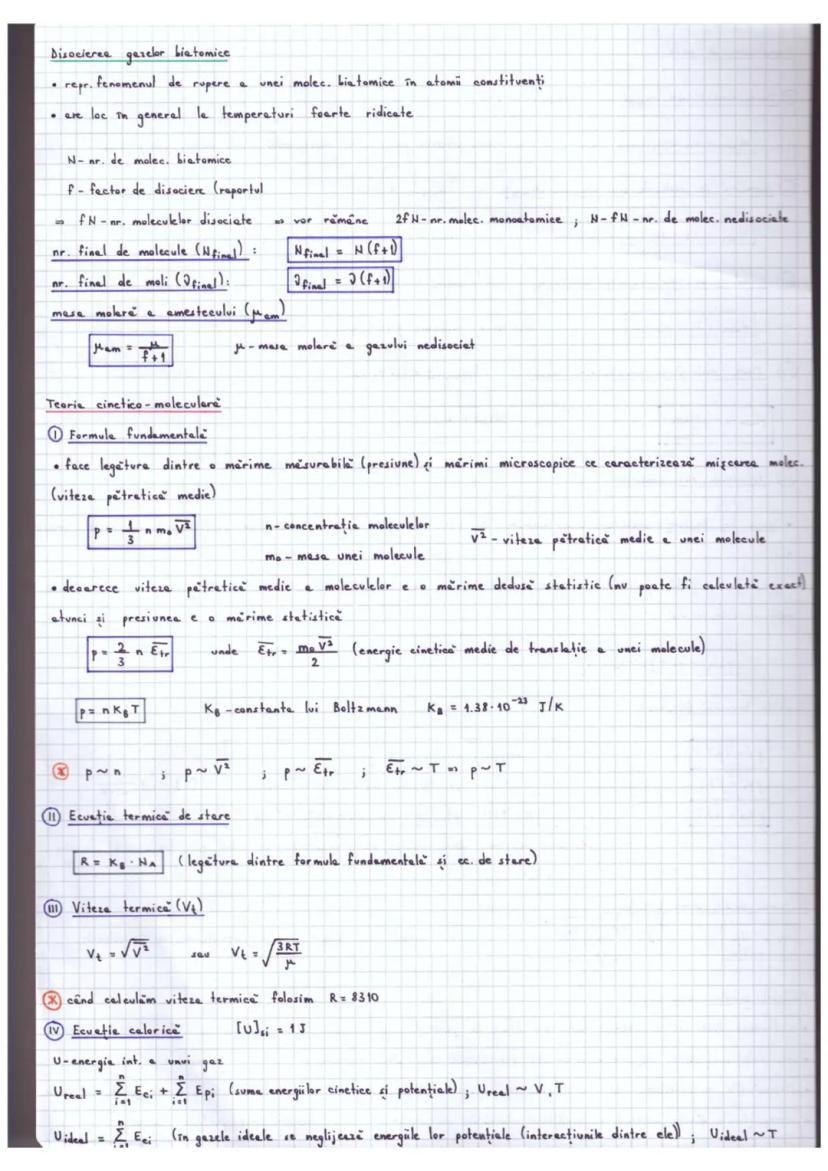 Disocierea gazelor biatomice
• repr. fenomenul de rupere a unei molec. biatomice în atomii constituenți
• are loc în general la temperaturi foarte ridicate
N - nr. de molec. biatomice
f - factor de disociere (raportul
⇒ fN - nr. moleculelor disociate ⇒ vor rămâne 2fN - nr. molec. monoatomice ; N - fN - nr. de molec. nedisociate
nr. final de molecule (Nfinal) : Nfinal = N (f+1)
nr. final de moli (νfinal): νfinal = ν (f+1)
masa molară a amestecului (μam)
μam = μ/(f+1) μ - masa molară a gazului nedisociat
Teoria cinetico - moleculară
(I) Formula fundamentală
• face legătura dintre o mărime măsurabilă (presiune) și mărimi microscopice ce caracterizează mișcarea molec.
(viteza pătratică medie)
p = 1/3 n m₀ v̅²̅ n - concentrația moleculelor v̅²̅ - viteza pătratică medie a unei molecule
m₀ - masa unei molecule
• deoarece viteza pătratică medie a moleculelor e o mărime dedusă statistic (nu poate fi calculată exact)
atunci și presiunea e o mărime statistică
p = 2/3 n ε̅tr unde ε̅tr = m₀ v̅²̅/2 (energie cinetică medie de translație a unei molecule)
p = n KB T KB - constanta lui Boltzmann KB = 1.38 · 10⁻²³ J/K
* p ~ n ; p ~ v̅²̅ ; p ~ ε̅tr ; ε̅tr ~ T ⇒ p ~ T
(II) Ecuația termică de stare
R = KB · NA (legătura dintre formula fundamentală și ec. de stare)
(III) Viteza termică (Vt)
Vt = √v̅²̅ sau Vt = √(3RT/μ)
* când calculăm viteza termică folosim R = 8310
(IV) Ecuația calorică [U]si = 1 J
U - energia int. a unui gaz
Ureal = Σ(i=1→n) Eci + Σ(i=1→n) Epi (suma energiilor cinetice și potențiale) ; Ureal ~ V, T
Uideal = Σ(i=1→n) Eci (în gazele ideale se neglijează energiile lor potențiale (interacțiunile dintre ele)) ; Uideal ~ T